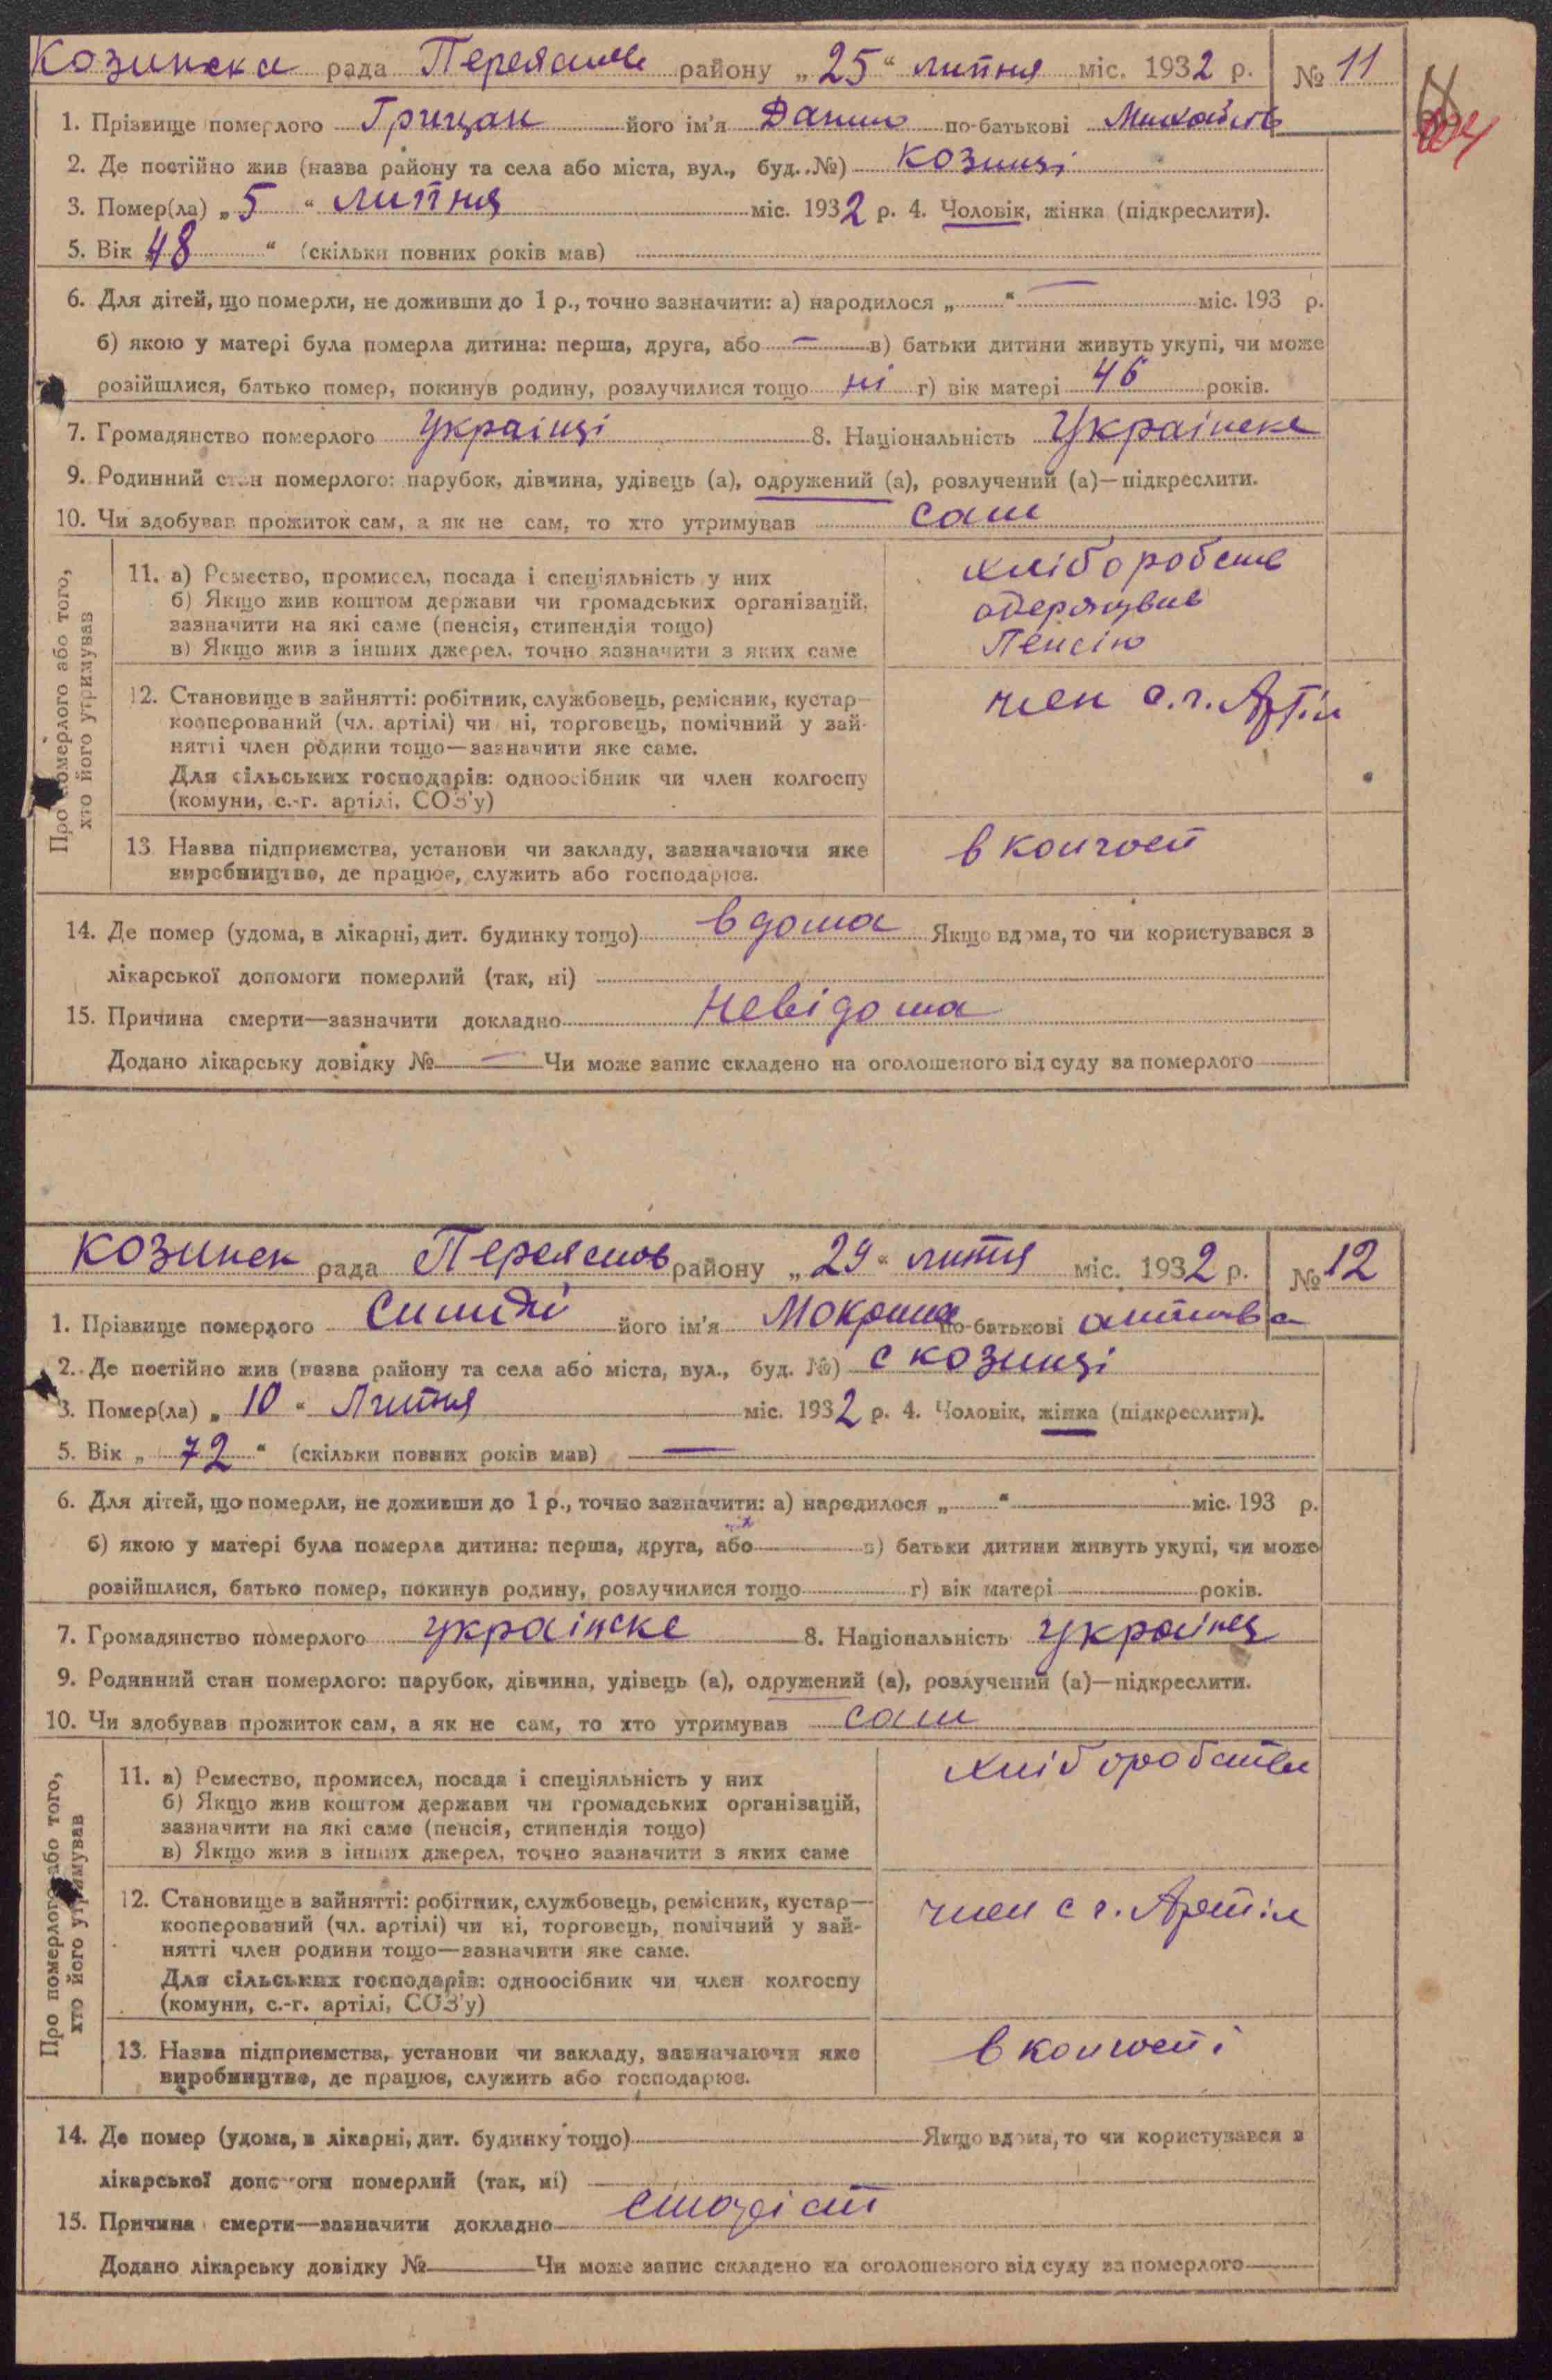 Козинска рада Переяслав району „25“ липня міс. 1932 р. № 11
1. Прізвище померлого Грицан його ім'я Данило по-батькові Михайлів
2. Де постійно жив (назва району та села або міста, вул., буд. №) Козинці
3. Помер(ла) „5“ липня міс. 1932 р. 4. Чоловік, жінка (підкреслити).
5. Вік „48“ (скільки повних років мав)
6. Для дітей, що померли, не доживши до 1 р., точно зазначити: а) народилося „ “ — міс. 193 р.
б) якою у матері була померла дитина: перша, друга, або — в) батьки дитини живуть укупі, чи може
розійшлися, батько помер, покинув родину, розлучилися тощо ні г) вік матері 46 років.
7. Громадянство померлого Украінці 8. Національність Украінске
9. Родинний стан померлого: парубок, дівчина, удівець (а), одружений (а), розлучений (а)—підкреслити.
10. Чи здобував прожиток сам, а як не сам, то хто утримував сам
Про померлого або того,
хто його утримував
11. а) Ремество, промисел, посада і спеціяльність у них
б) Якщо жив коштом держави чи громадських організацій,
зазначити на які саме (пенсія, стипендія тощо)
в) Якщо жив з інших джерел, точно зазначити з яких саме
хліборобств
одержував
Пенсію
12. Становище в зайнятті: робітник, службовець, ремісник, кустар—
кооперований (чл. артілі) чи ні, торговець, помічний у зай-
нятті член родини тощо—зазначити яке саме.
Для сільських господарів: одноосібник чи член колгоспу
(комуни, с.-г. артілі, СОЗ'у)
член с.г. Артіл
13. Назва підприємства, установи чи закладу, зазначаючи яке
виробництво, де працює, служить або господарює.
в колгосп
14. Де помер (удома, в лікарні, дит. будинку тощо) вдома Якщо вдома, то чи користувався з
лікарської допомоги померлий (так, ні)
15. Причина смерти—зазначити докладно невідома
Додано лікарську довідку № — Чи може запис складено на оголошеного від суду за померлого
Козинск рада Переяслов району „29“ липня міс. 1932 р. № 12
1. Прізвище померлого його ім'я Мокрина по-батькові
2. Де постійно жив (назва району та села або міста, вул., буд. №) с Козинці
3. Помер(ла) „10“ Липня міс. 1932 р. 4. Чоловік, жінка (підкреслити).
5. Вік „72“ (скільки повних років мав) —
6. Для дітей, що померли, не доживши до 1 р., точно зазначити: а) народилося „ “ міс. 193 р.
б) якою у матері була померла дитина: перша, друга, або в) батьки дитини живуть укупі, чи може
розійшлися, батько помер, покинув родину, розлучилися тощо г) вік матері років.
7. Громадянство померлого украінске 8. Національність украінец
9. Родинний стан померлого: парубок, дівчина, удівець (а), одружений (а), розлучений (а)—підкреслити.
10. Чи здобував прожиток сам, а як не сам, то хто утримував сам
Про померлого або того,
хто його утримував
11. а) Ремество, промисел, посада і спеціяльність у них
б) Якщо жив коштом держави чи громадських організацій,
зазначити на які саме (пенсія, стипендія тощо)
в) Якщо жив з інших джерел, точно зазначити з яких саме
хліборобство
12. Становище в зайнятті: робітник, службовець, ремісник, кустар—
кооперований (чл. артілі) чи ні, торговець, помічний у зай-
нятті член родини тощо—зазначити яке саме.
Для сільських господарів: одноосібник чи член колгоспу
(комуни, с.-г. артілі, СОЗ'у)
член с г. Артіл
13. Назва підприємства, установи чи закладу, зазначаючи яке
виробництво, де працює, служить або господарює.
в колгоспі
14. Де помер (удома, в лікарні, дит. будинку тощо) Якщо вдома, то чи користувався з
лікарської допомоги померлий (так, ні)
15. Причина смерти—зазначити докладно старіст
Додано лікарську довідку № Чи може запис складено на оголошеного від суду за померлого